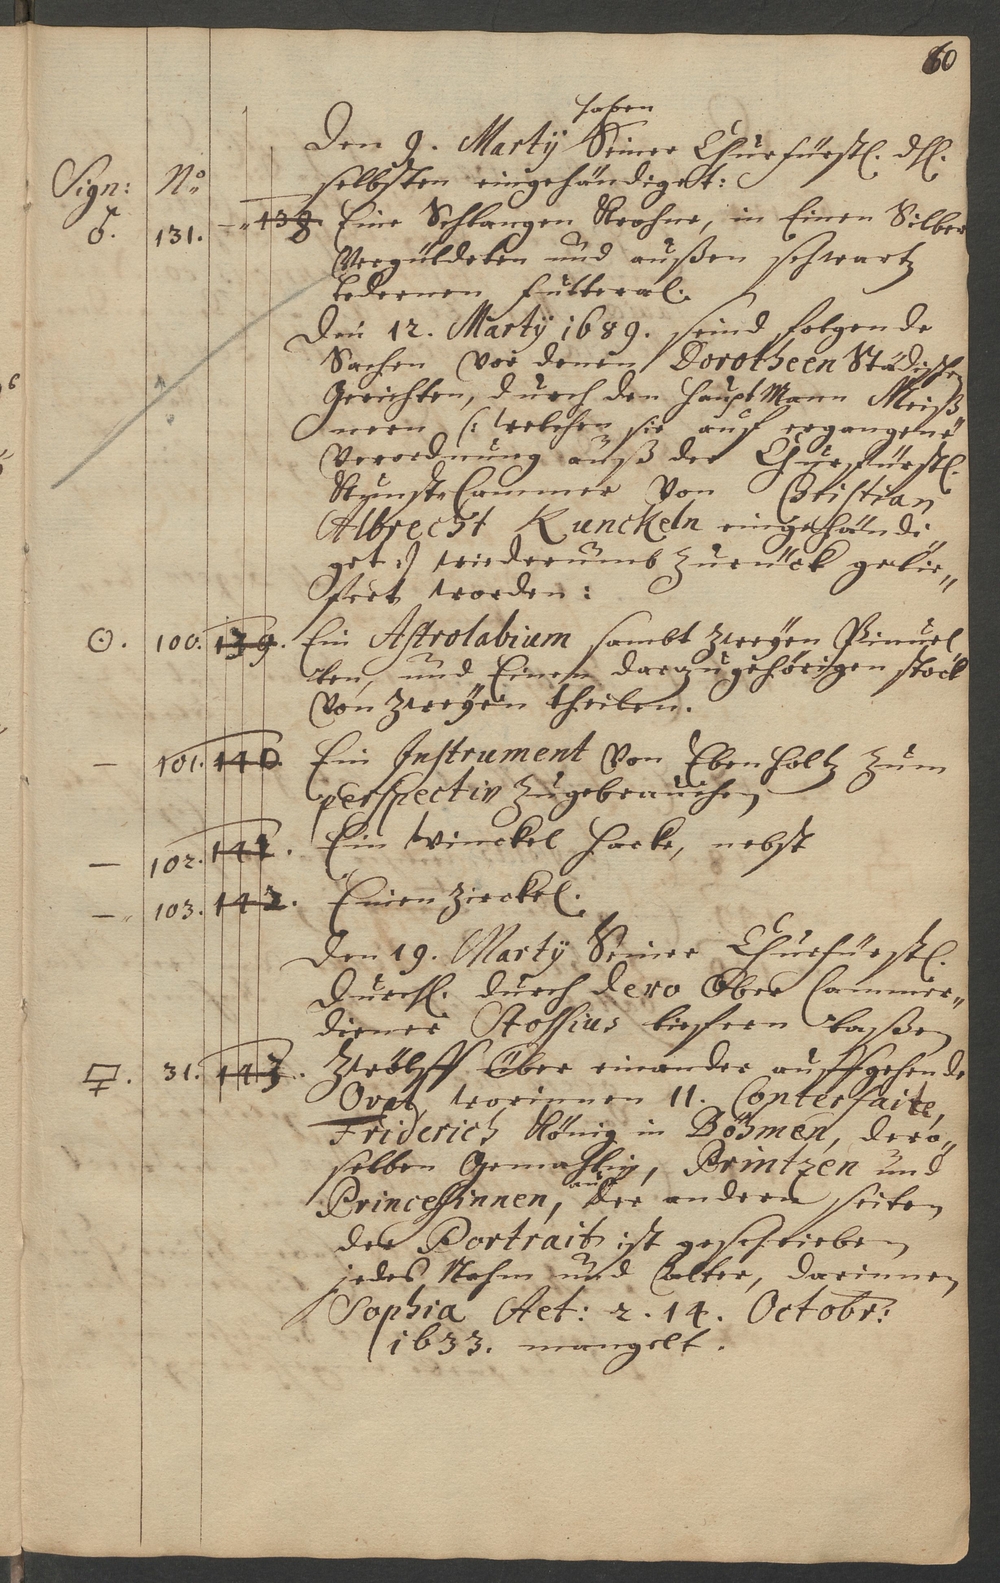 60
haben
Den 9. Martÿ Seiner Churfürstl. dhl.
Sign: No selbsten eingehändiget:
♂. 131. 138. Eine Schlangen Krohne, in Einen Silber
Vergüldeten und außen schwartz
ledernen futteral.
Den 12. Martÿ 1689. seind folgende
Sachen von denen Dorotheen Städischen
Gerichten, durch den HauptMann Meiß
nern (: welchen sie auf ergangene
Verordnung auß der Churfürstl.
Kunst Cammer von Christian
Albrecht Kunckeln eingehändi
get :) wiederumb zurück gelie„
fert worden:
☉. 100. 139. Ein Astrolabium sambt zweÿen Pinnul
ten, und Einem darzugehörigen stock
Von zweÿen theilen.
— 101. 140. Ein Instrument von Ebenholtz zum
perspectiv zugebrauchen
— 102. 141. Ein winckel hacke, nebst
— 103. 142. Einen Zirckel.
Den 19. Martÿ Seiner Churfürstl.
Durchl. durch dero Ober Cammer„
diener Stossius liefern laßen
♀. 31. 143. Zwölff über einander auffgehende
Ovat, worinnen 11. Conterfaite,
Friderich König in Böhmen, dero„
selben Gemahlin, Printzen und
auf
Princessinnen, der andern seiten
der Portrait ist geschrieben
jedes Nahm und alter, darinnen
Sophia Aet: 2. 14. Octobr:
1633. mangelt.